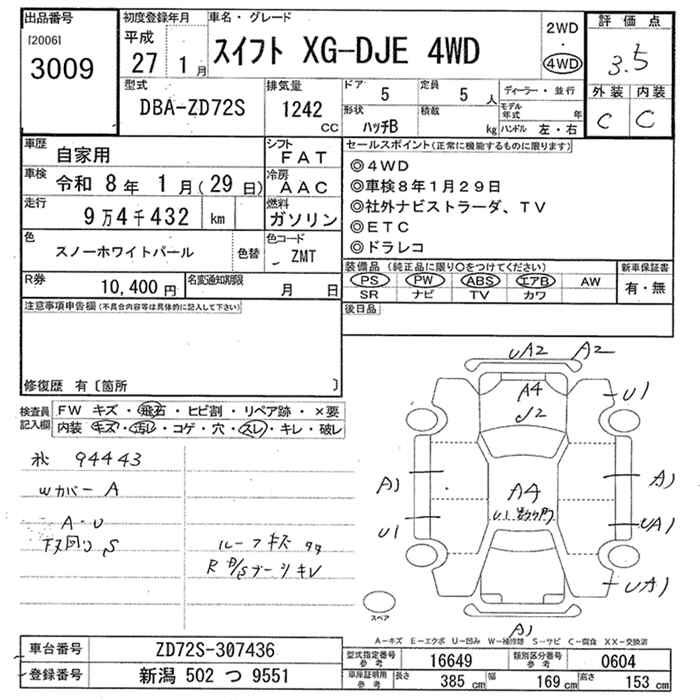 出品番号
[2006]
3009
初度登録年月
平成
27 1月
車名・グレード
スイフト XG-DJE 4WD
2WD
・
4WD
評価点
3.5
外装 内装
C C
型式
DBA-ZD72S
排気量
1242
CC
ドア 5
定員 5人
形状
ハッチB
積載
kg
ディーラー・並行
モデル年式 年
ハンドル 左・右
車歴
自家用
シフト
FAT
車検 令和 8年 1月(29日)
冷房
AAC
走行
9万4千432 km
燃料
ガソリン
色
スノーホワイトパール
色替
色コード
ZMT
セールスポイント(正常に機能するものに限ります)
◎4WD
◎車検8年1月29日
◎社外ナビストラーダ、TV
◎ETC
◎ドラレコ
R券
10,400円
名変通知期限
月 日
装備品(純正品に限り○をつけてください)
PS PW ABS エアB AW
SR ナビ TV カワ
新車保証書
有・無
注意事項申告欄(不具合内容等は具体的に記入して下さい)
後日品
修復歴 有〔箇所 〕
検査員記入欄
FW キズ・飛石・ヒビ割・リペア跡・×要
内装 キズ・汚レ・コゲ・穴・スレ・キレ・破レ
94443
Wカバー A
A・U
下廻り S
ルーフキズ
UA2 A2
A4
U1
A1
A1
A4
U1
U1
UA1
UA1
A1
スペア
A-キズ E-エクボ U-凹み W-補修跡 S-サビ C-腐食 XX-交換済
車台番号 ZD72S-307436
登録番号 新潟 502 つ 9551
型式指定番号 参考 16649
類別区分番号 参考 0604
車庫証明用 参考
長さ 385 cm
幅 169 cm
高さ 153 cm